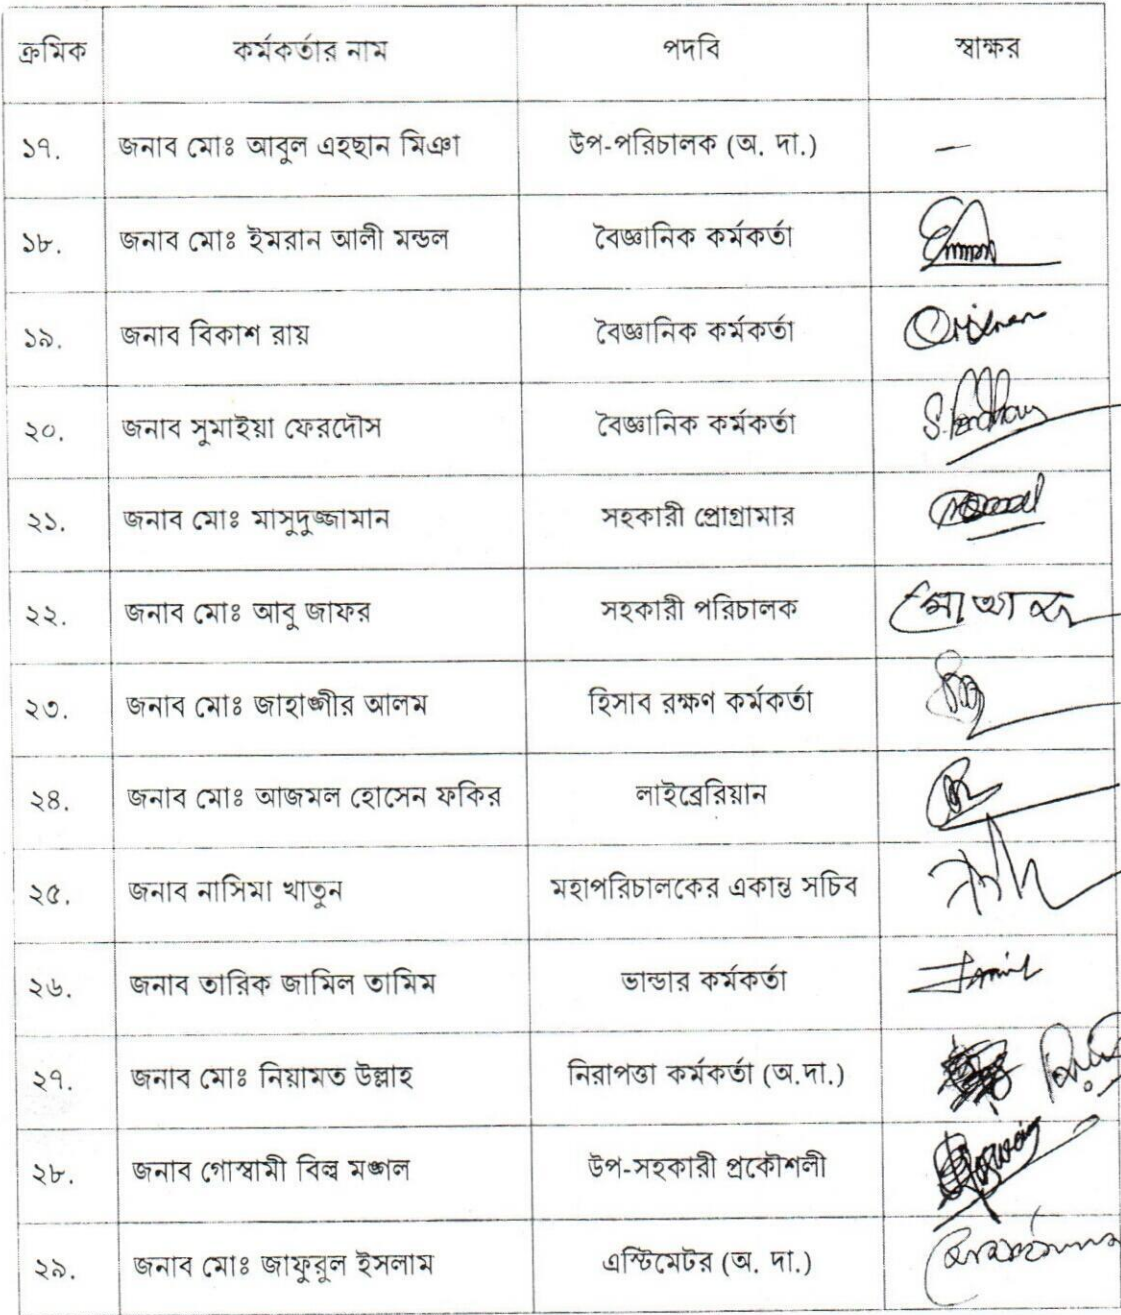 ক্রমিক কর্মকর্তার নাম পদবি স্বাক্ষর
১৭. জনাব মোঃ আবুল এহছান মিঞা উপ-পরিচালক (অ. দা.) –
১৮. জনাব মোঃ ইমরান আলী মন্ডল বৈজ্ঞানিক কর্মকর্তা
১৯. জনাব বিকাশ রায় বৈজ্ঞানিক কর্মকর্তা
২০. জনাব সুমাইয়া ফেরদৌস বৈজ্ঞানিক কর্মকর্তা
২১. জনাব মোঃ মাসুদুজ্জামান সহকারী প্রোগ্রামার
২২. জনাব মোঃ আবু জাফর সহকারী পরিচালক
২৩. জনাব মোঃ জাহাঙ্গীর আলম হিসাব রক্ষণ কর্মকর্তা
২৪. জনাব মোঃ আজমল হোসেন ফকির লাইব্রেরিয়ান
২৫. জনাব নাসিমা খাতুন মহাপরিচালকের একান্ত সচিব
২৬. জনাব তারিক জামিল তামিম ভান্ডার কর্মকর্তা
২৭. জনাব মোঃ নিয়ামত উল্লাহ নিরাপত্তা কর্মকর্তা (অ.দা.)
২৮. জনাব গোস্বামী বিল্ব মঙ্গল উপ-সহকারী প্রকৌশলী
২৯. জনাব মোঃ জাফুরুল ইসলাম এস্টিমেটর (অ. দা.)